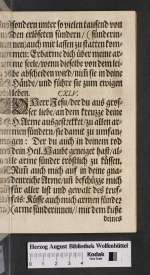 sondern unter so vielen tausend von
den erlöseten sündern / (sünderin-
nen) auch mit lassen zu statten kom-
men: Erbarme dich über meine ar-
me seele / wenn dieselbe von dem lei-
be abscheiden wird / nuß sie in deine
Hände / und führe sie zum ewigen
leben.
CXLV.
Herr Jesu / der du aus gros-
ser liebe / an dem kreuze deine
Arme ausgestrecket / zu allen ar-
men sündern / sie damit zu umfan-
gen: Der du auch in deinem tod
dein Heil. Haubt geneiget hast / al-
le arme sünder tröstlich zu küssen.
Nuß auch mich auf in deine gna-
denreiche Arme / uñ beschütze mich
für aller list und gewalt des teuf-
fels: Küsse auch mich armen sünder
(arme sünderinnen) mit dem kusse
deines
Herzog August Bibliothek Wolfenbüttel
Kodak